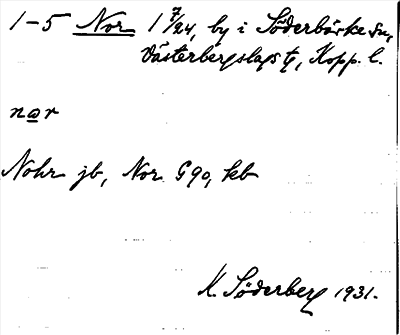 1-5 Nor 1 7/24, by i Söderbärke sn,
Västerbergslags tg, Kopp. l.
nɷr
Nohr jb, Nor G90, kb
K. Söderberg 1931.